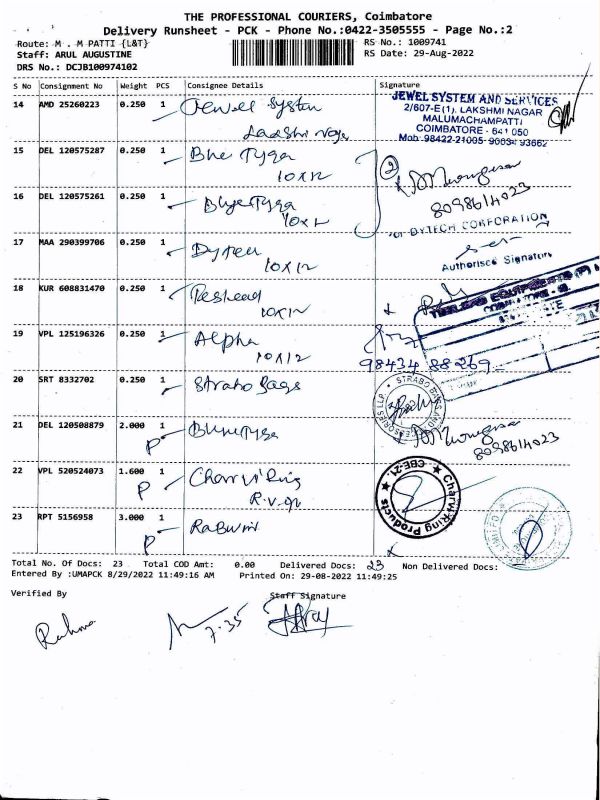 THE PROFESSIONAL COURIERS, Coimbatore
Delivery Runsheet - PCK - Phone No.:0422-3505555 - Page No.:2
Route: M . M PATTI {L&T} RS No.: 1009741
Staff: ARUL AUGUSTINE RS Date: 29-Aug-2022
DRS No.: DCJB100974102
S No Consignment No Weight PCS Consignee Details Signature
14 AMD 25260223 0.250 1 Jewell System
JEWEL SYSTEM AND SERVICES
2/607-E(1), LAKSHMI NAGAR
MALUMACHAMPATTI
COIMBATORE - 641 050
Mob: 98422-21005-90034 93662
15 DEL 120575287 0.250 1 Blue Tyga
10x12
2
8098614023
16 DEL 120575261 0.250 1 Blue Tyga
10x12
For BYTECH CORPORATION
17 MAA 290399706 0.250 1
10x12
Authorised Signatory
18 KUR 608831470 0.250 1
10x12
19 VPL 125196326 0.250 1 Alpha
10x12
98434 88269
20 SRT 8332702 0.250 1 Strabo Bags
STRABO BAGS AND ACCESSORIES LLP
21 DEL 120508879 2.000 1 Blue Tyga
P
8098614023
22 VPL 520524073 1.600 1 Charvi Ring
P R.V.
Charvi-Ring Products CBE-21
23 RPT 5156958 3.000 1
P
Total No. Of Docs: 23 Total COD Amt: 0.00 Delivered Docs: 23 Non Delivered Docs:
Entered By :UMAPCK 8/29/2022 11:49:16 AM Printed On: 29-08-2022 11:49:25
Verified By Staff Signature
7.35